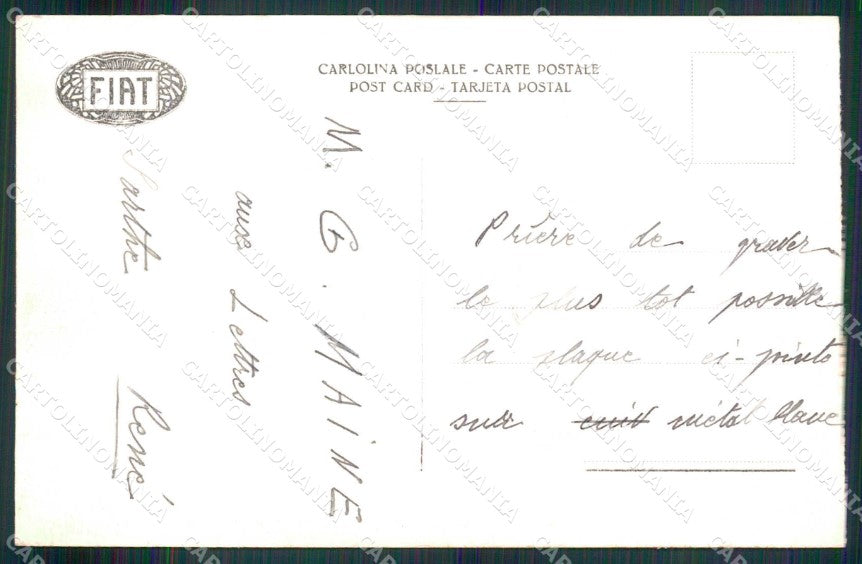 FIAT
CARLOLINA POSLALE - CARTE POSTALE
POST CARD - TARJETA POSTAL
M. G. MAINE
aux Lettres
Sarthe René
Prière de graver
le plus tot possible
la plaque ci-jointe
sur cuiv métal blanc
CARTOLINOMANIA